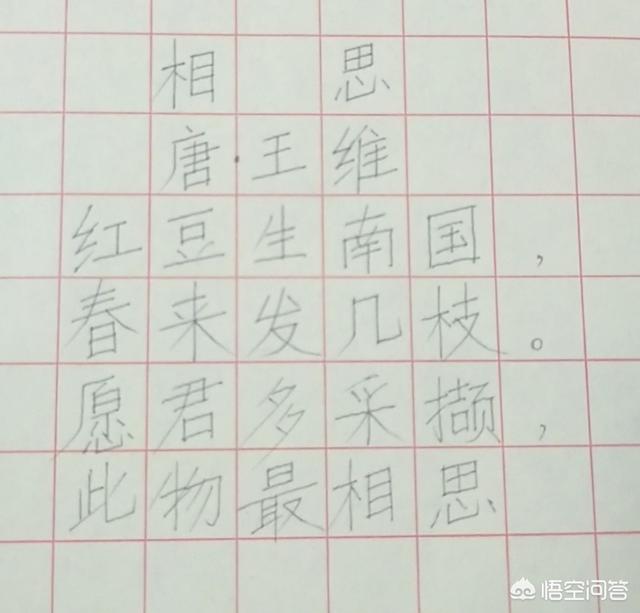 相思
唐·王维
红豆生南国，
春来发几枝。
愿君多采撷，
此物最相思
悟空问答